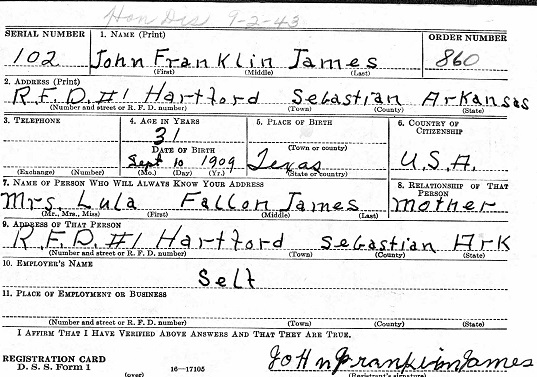 Hon Dis 9-2-43
SERIAL NUMBER 1. NAME (Print) ORDER NUMBER
102 John Franklin James 860
(First) (Middle) (Last)
2. ADDRESS (Print)
R.F.D. #1 Hartford Sebastian Arkansas
(Number and street or R. F. D. number) (Town) (County) (State)
3. TELEPHONE 4. AGE IN YEARS 5. PLACE OF BIRTH 6. COUNTRY OF CITIZENSHIP
31
(Town or county)
DATE OF BIRTH
Sept 10 1909 Texas U.S.A.
(Exchange) (Number) (Mo.) (Day) (Yr.) (State or country)
7. NAME OF PERSON WHO WILL ALWAYS KNOW YOUR ADDRESS 8. RELATIONSHIP OF THAT PERSON
Mrs. Lula Fallon James mother
(Mr., Mrs., Miss) (First) (Middle) (Last)
9. ADDRESS OF THAT PERSON
R.F.D. #1 Hartford Sebastian Ark
(Number and street or R. F. D. number) (Town) (County) (State)
10. EMPLOYER'S NAME
Self
11. PLACE OF EMPLOYMENT OR BUSINESS
(Number and street or R. F. D. number) (Town) (County) (State)
I AFFIRM THAT I HAVE VERIFIED ABOVE ANSWERS AND THAT THEY ARE TRUE.
REGISTRATION CARD
D. S. S. Form 1 16—17105 John Franklin James
(over) (Registrant's signature)